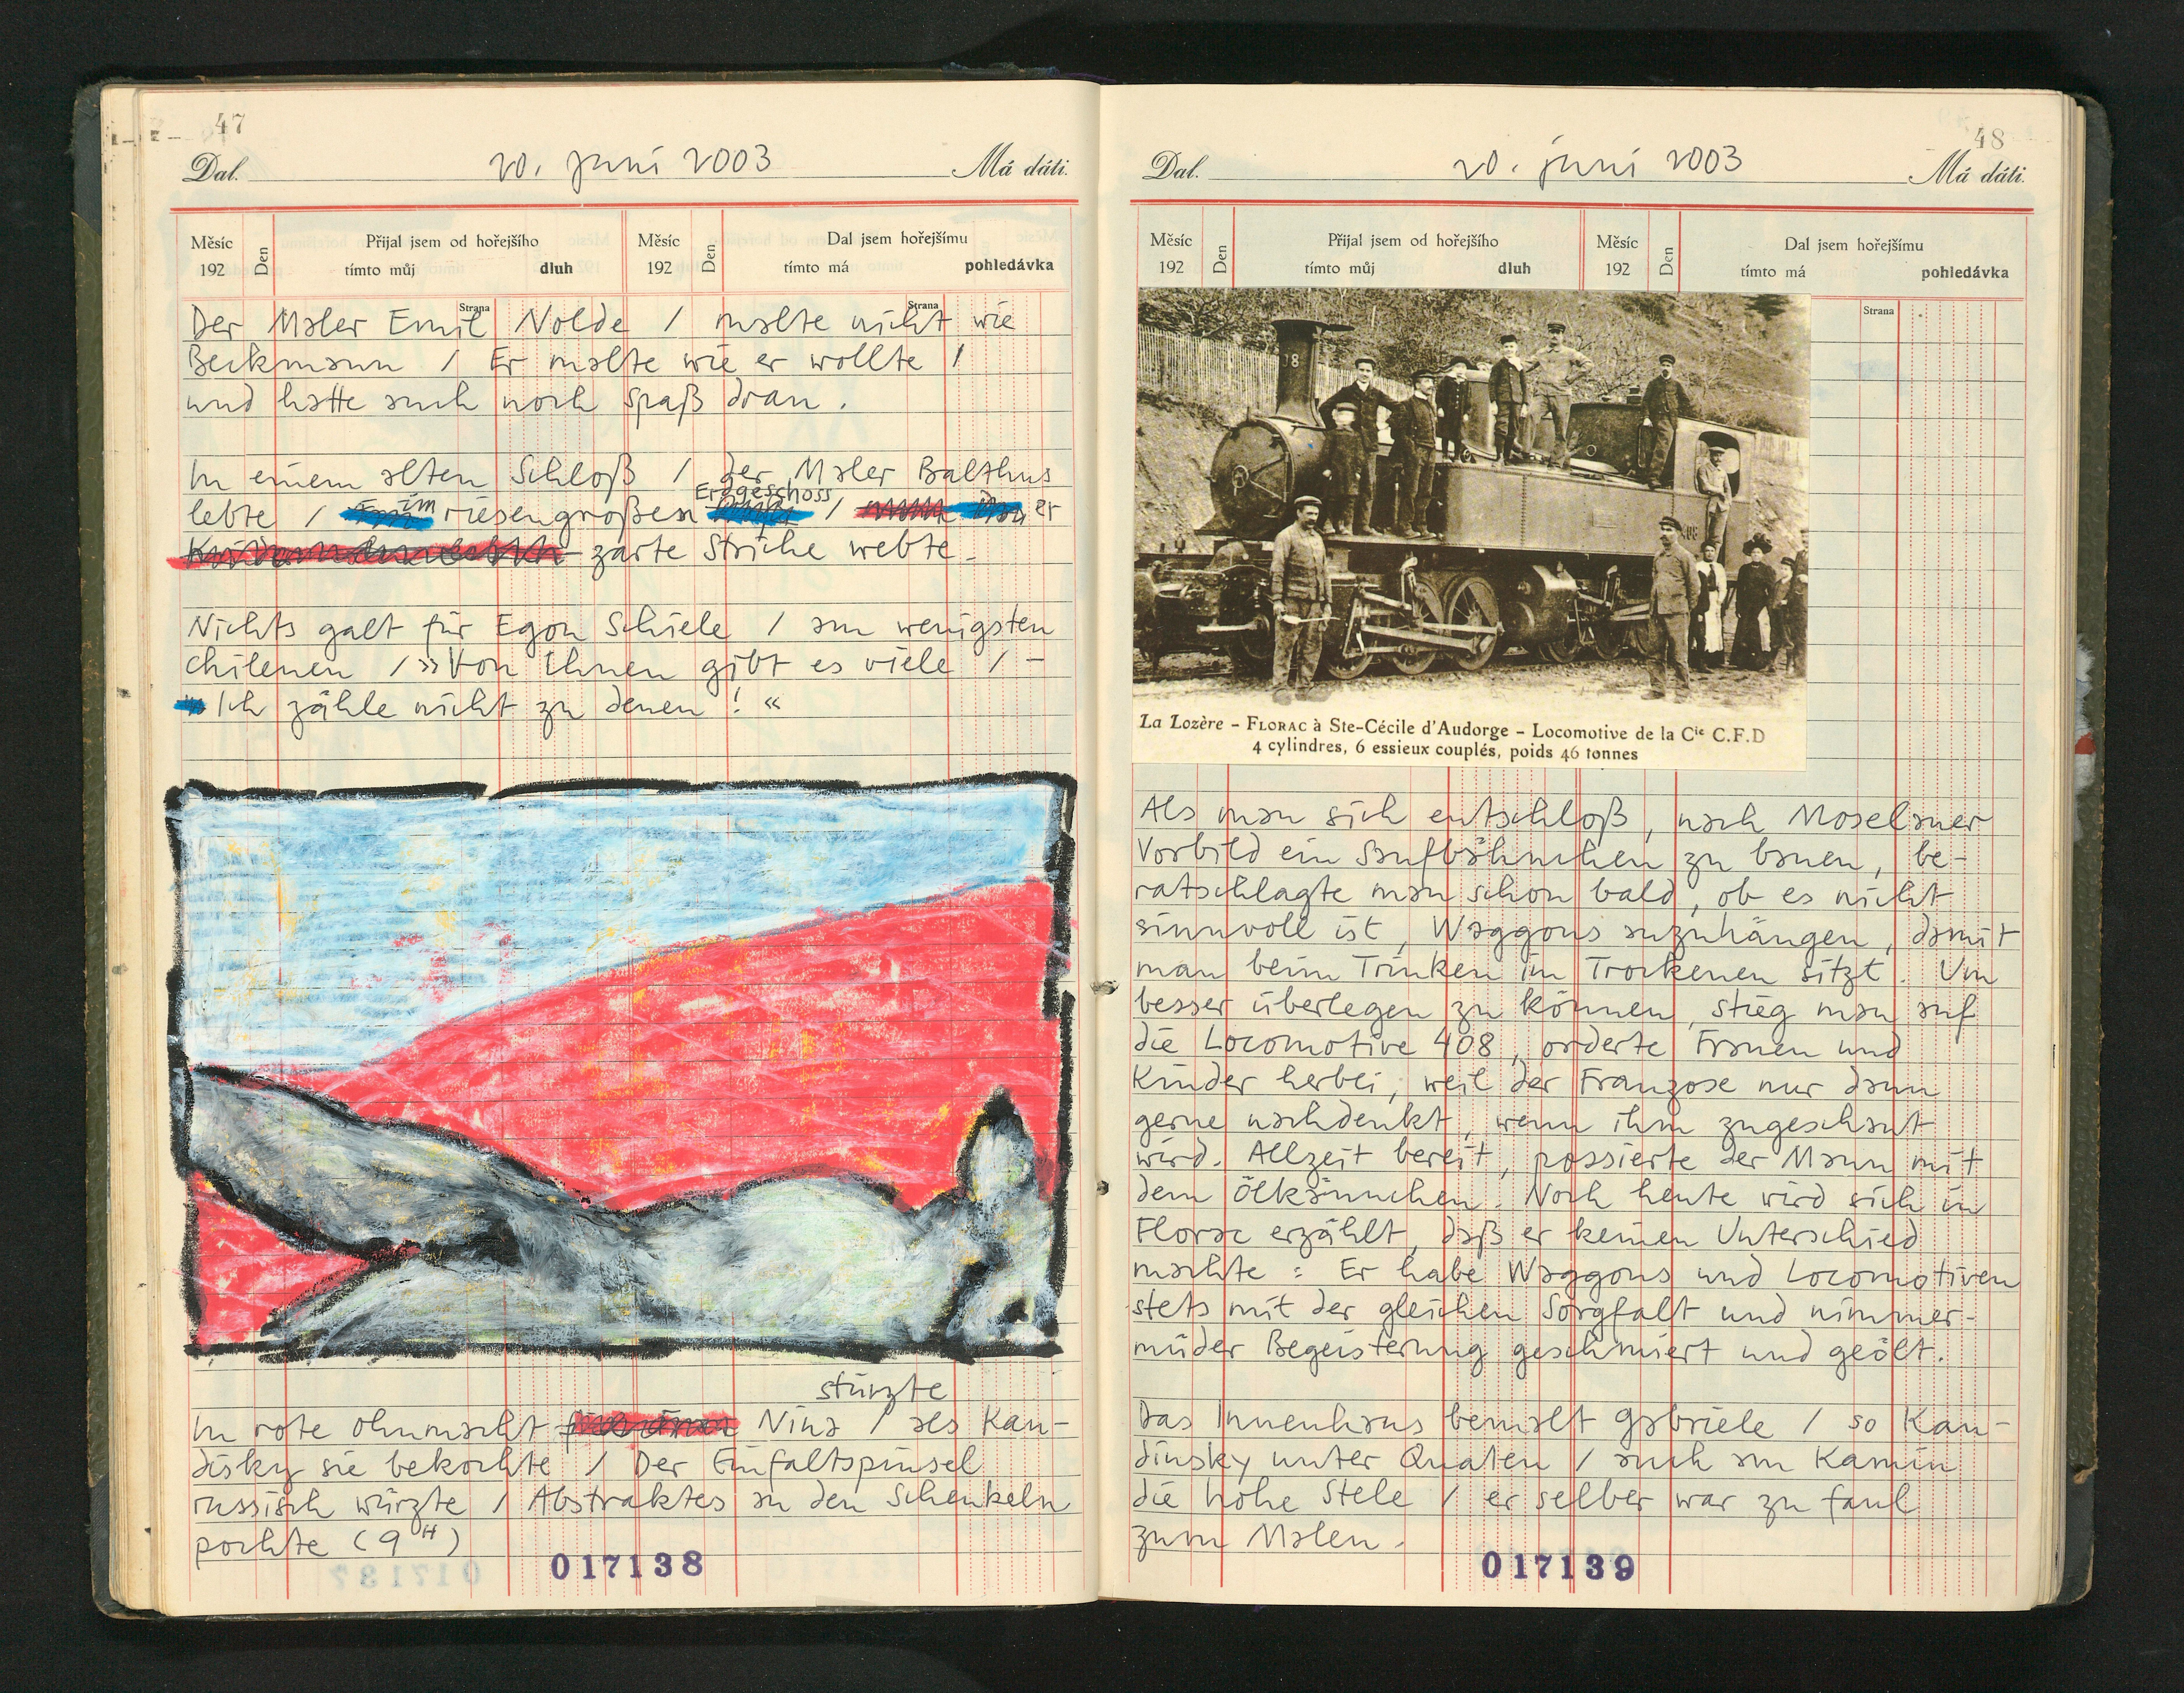 47
Dal. 20. Juni 2003 Má dáti.
Měsíc Den Přijal jsem od hořejšího Měsíc Den Dal jsem hořejšímu
192 tímto můj dluh 192 tímto má pohledávka
Strana Strana
Der Maler Emil Nolde / malte nicht wie
Beckmann / Er malte wie er wollte /
und hatte auch noch Spaß dran.
In einem alten Schloß / der Maler Balthus
Erdgeschoss
lebte / im riesengroßen / er
zarte Striche webte.
Nichts galt für Egon Schiele / am wenigsten
Chilenen / »Von Ihnen gibt es viele / –
Ich zähle nicht zu denen! «
stürzte
In rote Ohnmacht Nina / als Kan-
disky sie bekochte / Der Einfaltspinsel
russisch würzte / Abstraktes an den Schenkeln
pochte (9H)
017138
48
Dal. 20. Juni 2003 Má dáti.
Měsíc Den Přijal jsem od hořejšího Měsíc Den Dal jsem hořejšímu
192 tímto můj dluh 192 tímto má pohledávka
Strana
La Lozère – FLORAC à Ste-Cécile d'Audorge – Locomotive de la Cie C.F.D
4 cylindres, 6 essieux couplés, poids 46 tonnes
Als man sich entschloß, nach Moselaner
Vorbild ein Saufbähnchen zu bauen, be-
ratschlagte man schon bald, ob es nicht
sinnvoll ist, Waggons anzuhängen, damit
man beim Trinken im Trockenen sitzt. Um
besser überlegen zu können, stieg man auf
die Locomotive 408, orderte Frauen und
Kinder herbei, weil der Franzose nur dann
gerne nachdenkt, wenn ihm zugeschaut
wird. Allzeit bereit, possierte der Mann mit
dem Ölkännchen. Noch heute wird sich in
Florac erzählt, daß er keinen Unterschied
machte: Er habe Waggons und Locomotiven
stets mit der gleichen Sorgfalt und nimmer-
müder Begeisterung geschmiert und geölt.
Das Innenhaus bemalt Gabriele / so Kan-
dinsky unter Qualen / auch am Kamin
die hohe Stele / er selber war zu faul
zum Malen.
017139